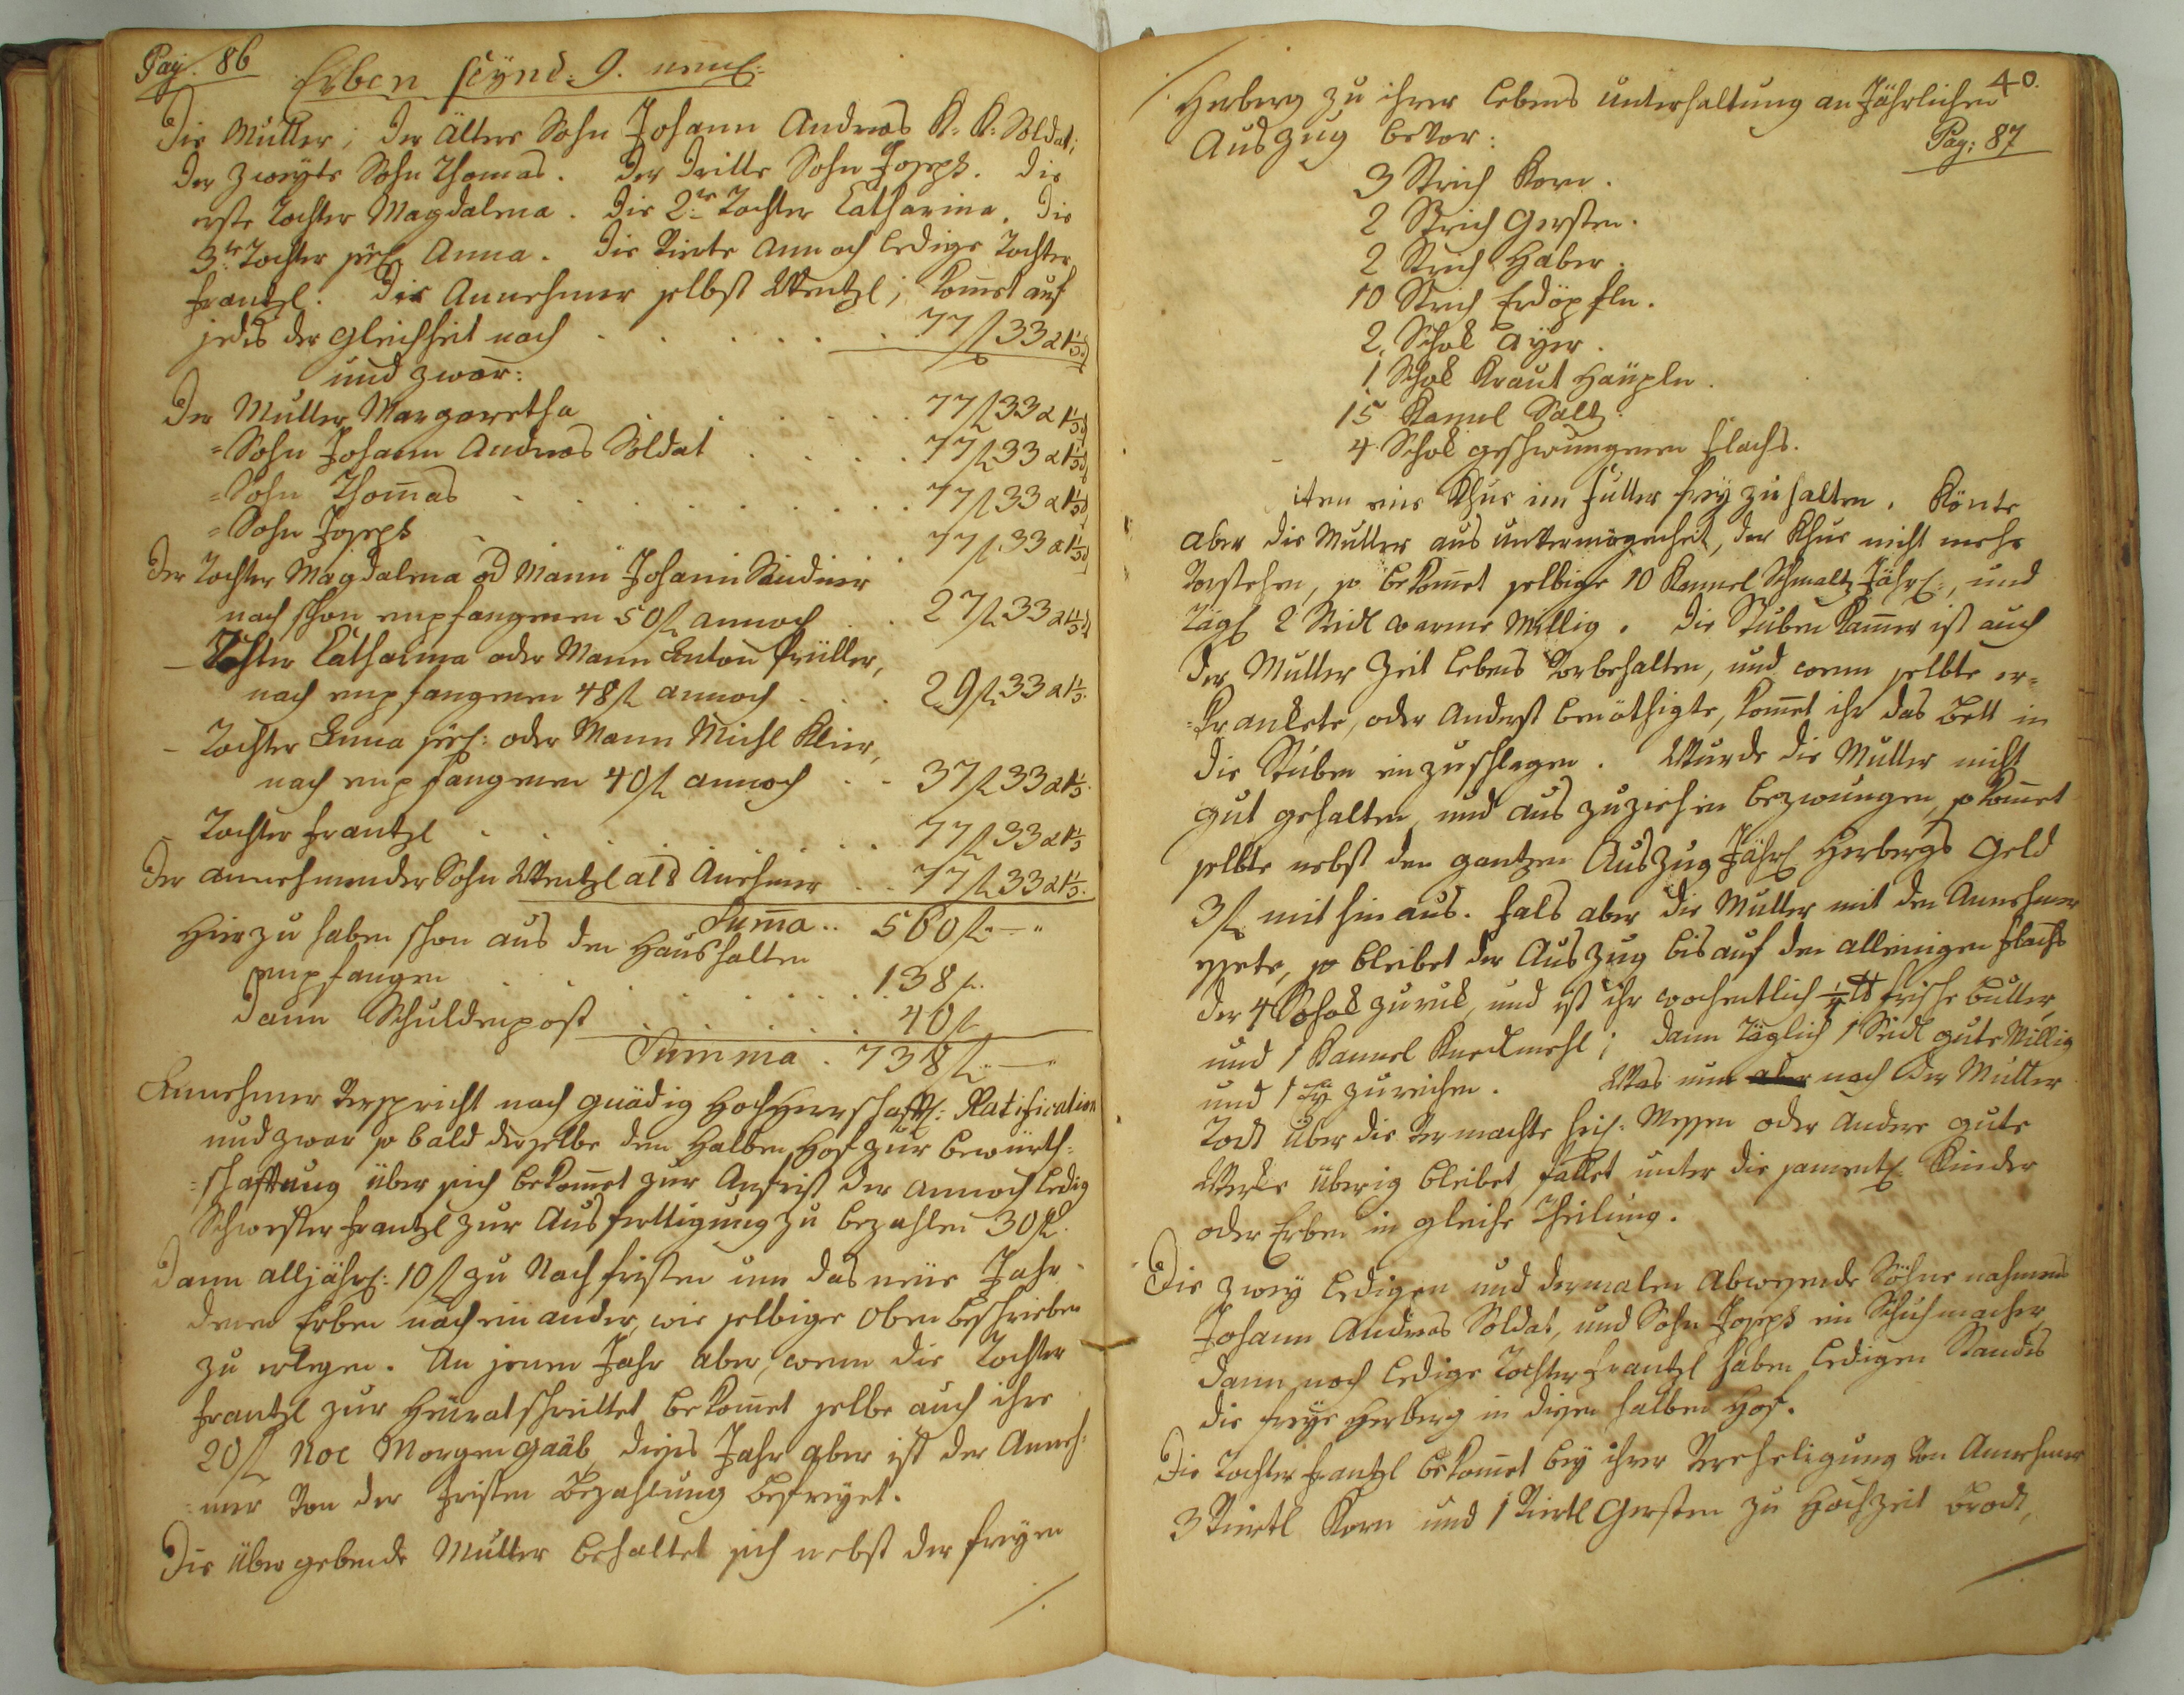 Pag. 86
Erben seÿnd: 9. neml:
Die Mutter; der ältere Sohn Johann Andreas K: K: Soldat;
der zweÿte Sohn Thomas. der dritte Sohn Joseph. die
erste Tochter Magdalena. die 2te Tochter Catharina. die
3te Tochter seel: Anna. die vierte annoch ledige Tochter
Frantzl. die Annehmer selbst Wentzl; komet auf
jedes der gleichheit nach . . . . . . 77 f 33 x 1 1/3 d
und zwar:
Der Mutter Margaretha . . . . . . 77 f 33 x 1 1/3 d
= Sohn Johann Andreas Soldat . . . . 77 f 33 x 1 1/3 d
= Sohn Thomas . . . . . . . 77 f 33 x 1 1/3 d
= Sohn Joseph . . . . . . . 77 f 33 x 1 1/3 d
Der Tochter Magdalena od Mann Johann
nach schon empfangenen 50 f annoch . . 27 f 33 x 1 1/3 d
– Tochter Catharina oder Mann Anton
nach empfangenen 48 f annoch . . . 29 f 33 x 1 1/3
– Tochter Anna seel: oder Mann Michl Klier,
nach empfangenen 40 f annoch . . 37 f 33 x 1 1/3
– Tochter Frantzl . . . . . . . 77 f 33 x 1 1/3
Der annehmender Sohn Wentzl als Anehmer . . 77 f 33 x 1 1/3.
Suma .. 560 f – "
Hierzu haben schon aus den Haushalten
empfangen . . . . . . . 138 f.
Dann Schuldenpost . . . . . 40 f
Summa . 738 f –
Annehmer verspricht nach gnädig Hochherrschaftl: Ratification
und zwar so bald derselbe den Halben Hof zur bewürth-
=schaftung über sich bekomet zur Anfrist der annoch ledig
Schwester Frantzl zur Ausfertigung zu bezahlen 30 f.
Dann alljährl: 10 f zu Nachfristen um das neüe Jahr
denen Erben nach ein ander, wie selbige oben beschrieben
zu erlegen. An jenem Jahr aber, wenn die Tochter
Frantzl zur Heüratschreittet bekomet selbe auch ihre
20 f Noe Morgengaab, dieses Jahr aber ist der Anneh-
=mer von der Fristen Bezahlung befreyet.
Die übergebende Mutter behaltet sich nebst der freyen
/.
40.
Pag: 87
/. Herberg zu ihrer lebens unterhaltung an Jährlichen
Auszug bevor:
3 Strich Korn.
2 Strich Gersten.
2 Strich Haber.
10 Strich Erdöpfln.
2. Schok Ayer.
1. Schok Kraut Häupln.
15 Kannel Saltz.
4. Schok geschwungenen Flachs.
iten eine Khue im Futter frey zu halten. Könte
aber die Mutter aus unvermögenheit, der Khue nicht mehr
vorstehen, so bekomet selbige 10 Kannel Schmaltz Jährl:, und
Tägl 2 Seidl warme Millig. die Stuben Kammer ist auch
der Mutter Zeit lebens vorbehalten, und wenn selbte er-
=krankete, oder anderst benöthigte, komet ihr das Bett in
die Stuben einzuschlagen. Wurde die Mutter nicht
gut gehalten, und aus zuziehen bezwungen, so komet
selbte nebst den gantzen Auszug Jährl Herbergs Geld
3 f mit hinaus. Fals aber die Mutter mit den Annehmer
essete, so bleibet der Auszug bis auf den alleinigen Flachs
der 4 Schok zuruk, und ist ihr wochentlich 1/4 ℔ frische butter,
und 1 Kannel Kuchlmehl; dann Täglich 1 Seidl gute Millig
und 1 Ey zureichen. Was nun aber nach der Mutter
Todt über die vermachte heil: Messen oder andere gute
Werke überig bleibet, fallet unter die samentl Kinder
oder Erben in gleiche Theilung.
Die zwey ledigen und dermalen abwesende Söhne nahmens
Johann Andreas Soldat, und Sohn Joseph ein Schuhmacher,
dann noch ledige Tochter Frantzl haben ledigen Standes
die freye Herberg in diesen halben Hof.
Die Tochter Frantzl bekomet bey ihrer Vereheligung von Annehmer
3 Viertl Korn und 1 Viertl Gersten zu Hochzeit brodt,